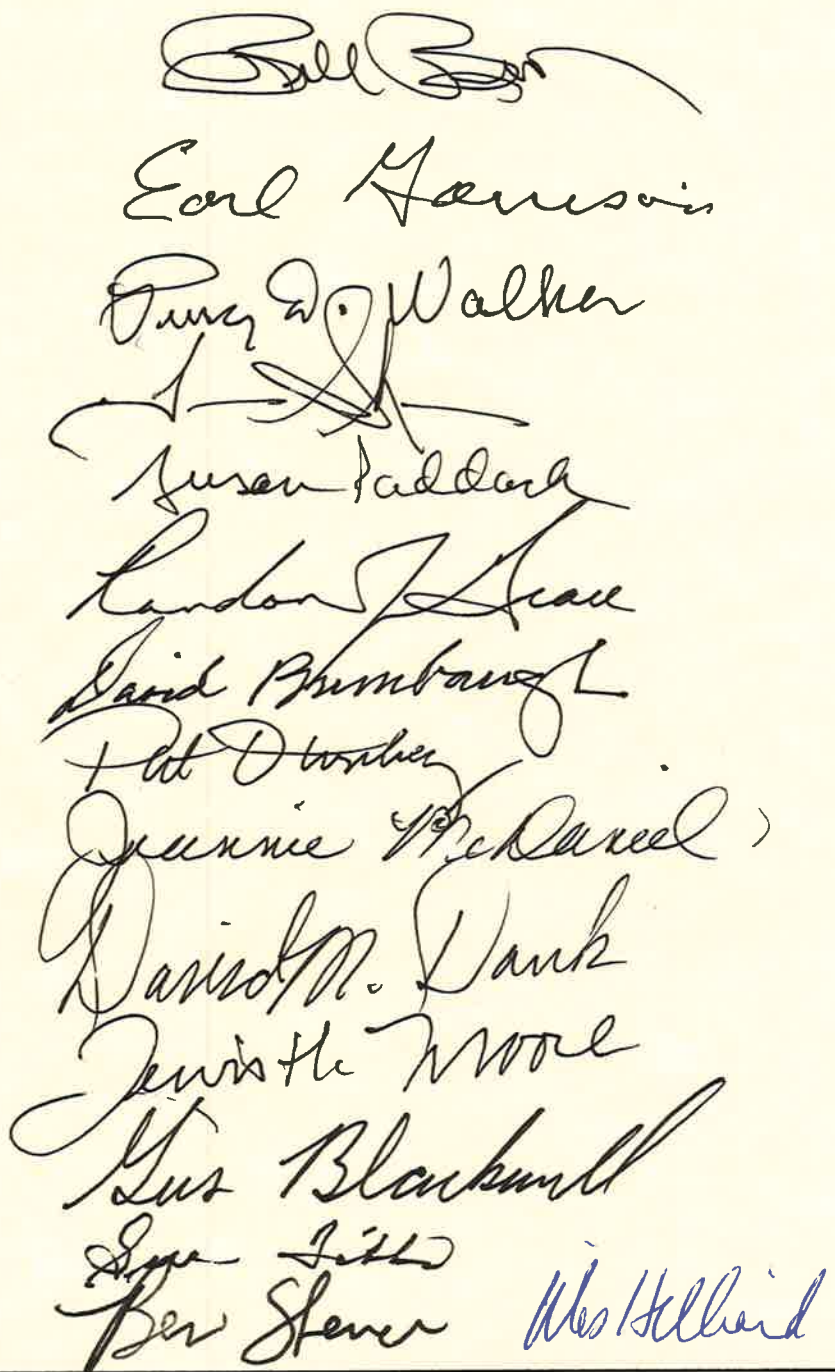 Bill
Earl Garrison
Purcy D. Walker
Susan Paddack
Randon J Grau
David Brumbaugh
Pat Ownbey
Jeannie McDaniel
David M. Dank
Lewis H. Moore
Gus Blackwell
Sue Tibbs
Ben Sherrer Wes Hilliard